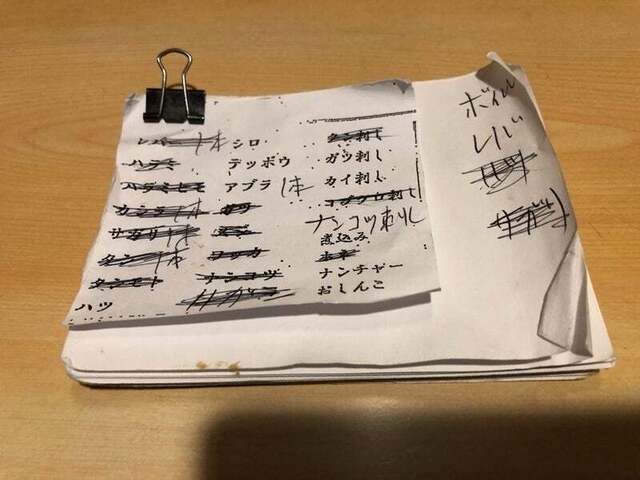 レバー 1本
ハラミ
カシラ 1本
サガリ 1本
タン 1本
タンモト
ハツ
シロ
テッポウ
アブラ 1本
ナンコツ
タン刺し
ガツ刺し
カイ刺し
コブクロ刺し
ナンコツ刺し
煮込み
ナンチャー
おしんこ
ボイル
レバ